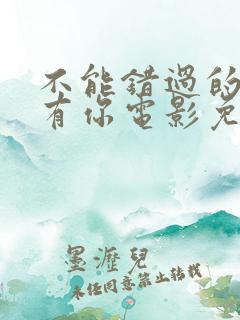 不能错过的
有你电影免
墨瀝兒
未经同意禁止转载